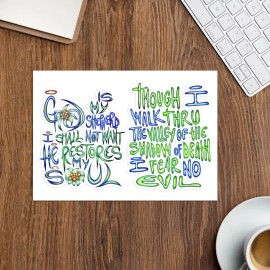 GOD IS MY
SHEPHERD I
SHALL NOT WANT
HE RESTORES
MY
SOUL
THOUGH I
WALK THRU
THE VALLEY OF THE
SHADOW OF DEATH
I FEAR NO
EVIL